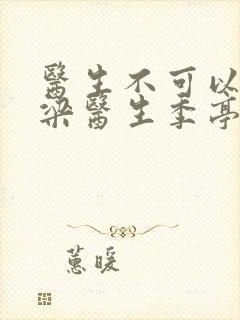 醫生不可以
梁醫生季亭
蕙暖